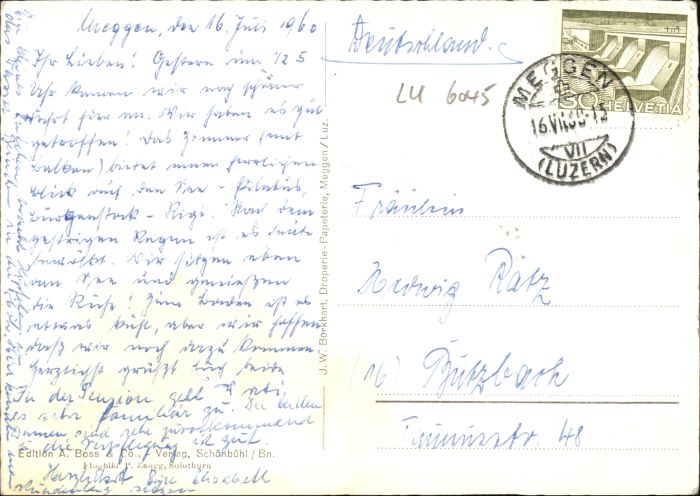 Meggen, den 16. Juli 1960
Ihr Lieben! Gestern um 1/2 5
Uhr kamen wir nach schöner
Fahrt hier an. Wir haben es gut
getroffen! Das Zimmer (mit
Balkon) bietet einen herrlichen
Blick auf den See - Pilatus,
Bürgenstock - Rigi. Nach dem
gestrigen Regen ist es heute
bewölkt. Wir sitzen eben
am See und genießen
die Ruhe! Zum Baden ist es
etwas kühl, aber wir hoffen
daß wir noch dazu kommen
Herzlichst grüßt Euch beide
In der Pension geht
es sehr familiär zu. Die beiden
Damen sind sehr zuvorkommend
die Verpflegung ist gut.
Herzlichst Eure Elisabeth
Edition A. Boss & Co., Verlag, Schönbühl / Bn.
Flugbild P. Zaugg, Solothurn
J. W. Borkhart, Droperie-Papeterie, Meggen / Luz.
Deutschland.
LU 6045
30 HELVETIA
MEGGEN
16.VII.60-15
VII
(LUZERN)
Fräulein
Hedwig Ratz
(16) Butzbach
Taunusstr. 48